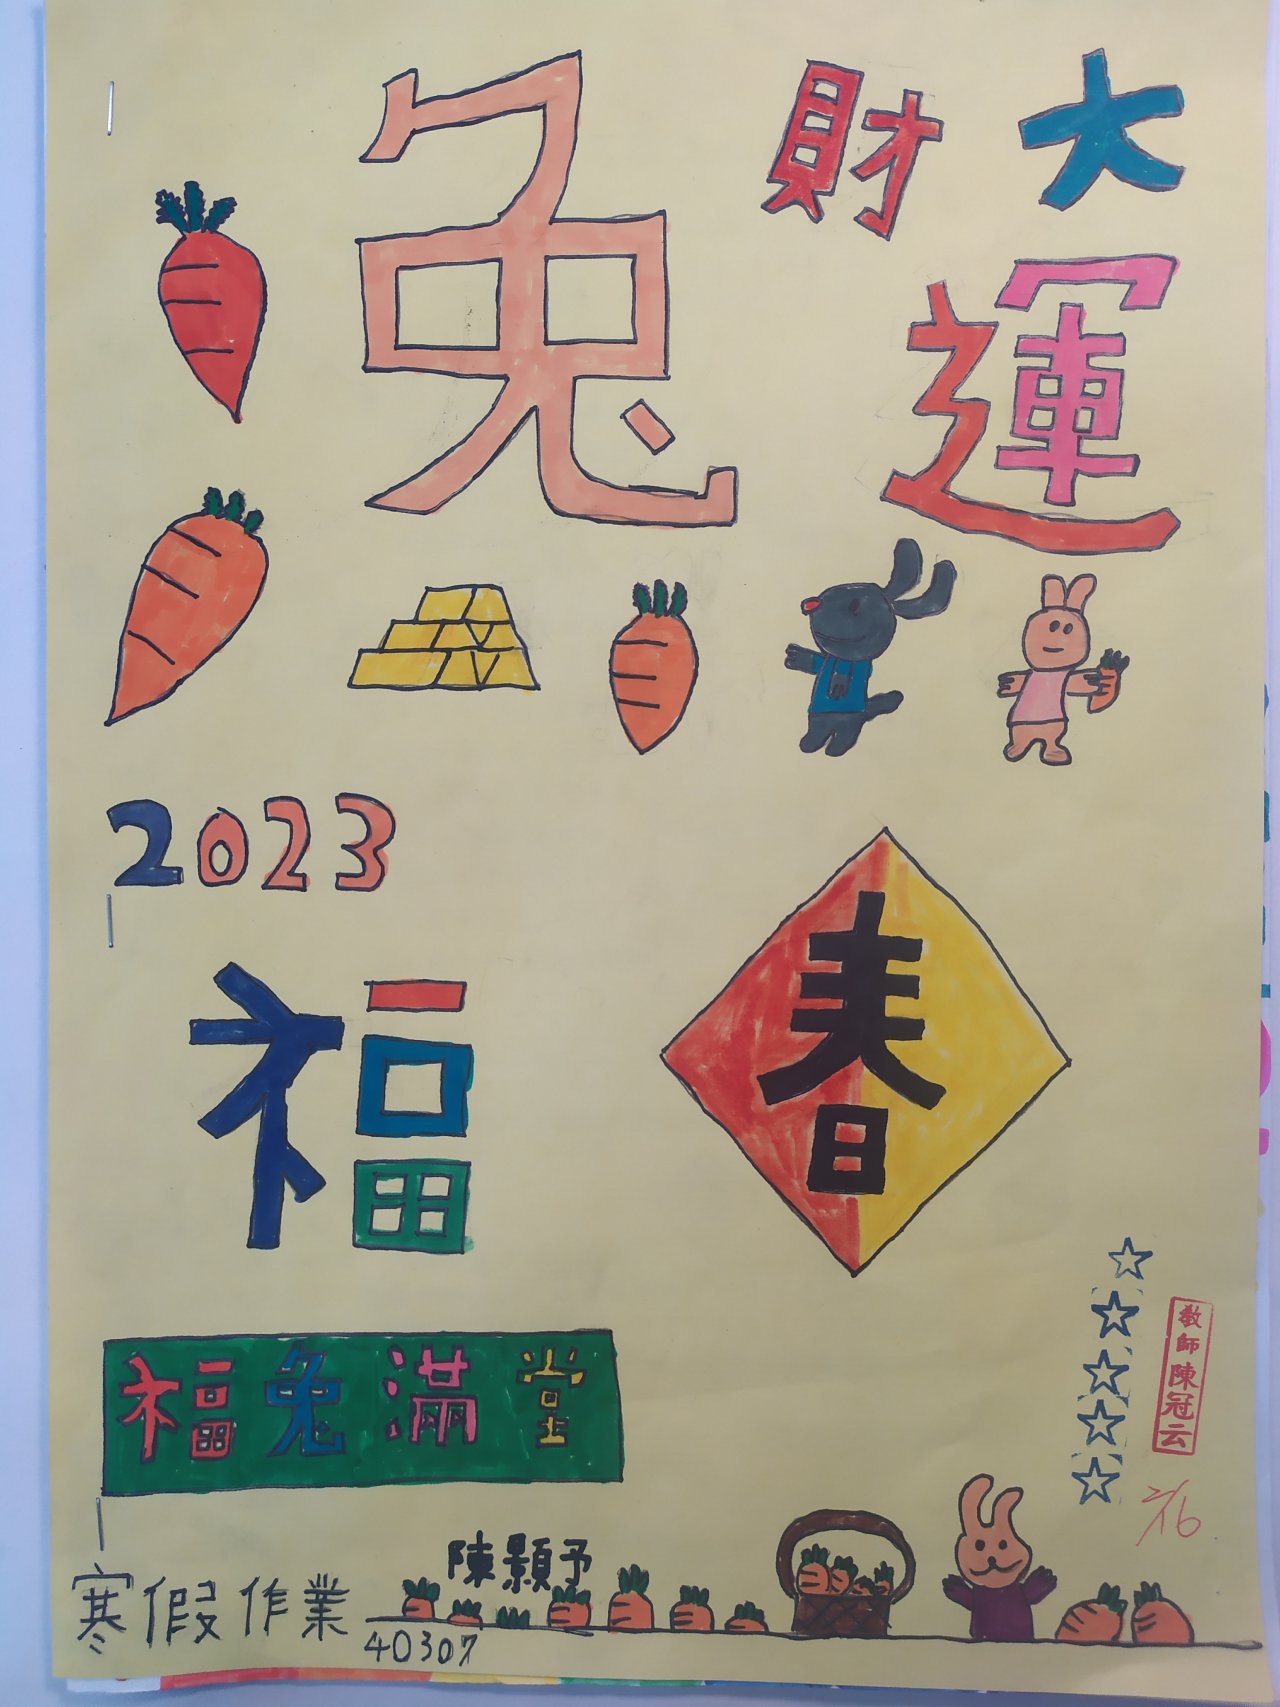 大財
運
兔
2023
福
春
福兔滿堂
教師陳冠云
2/16
陳顥予
寒假作業
40307